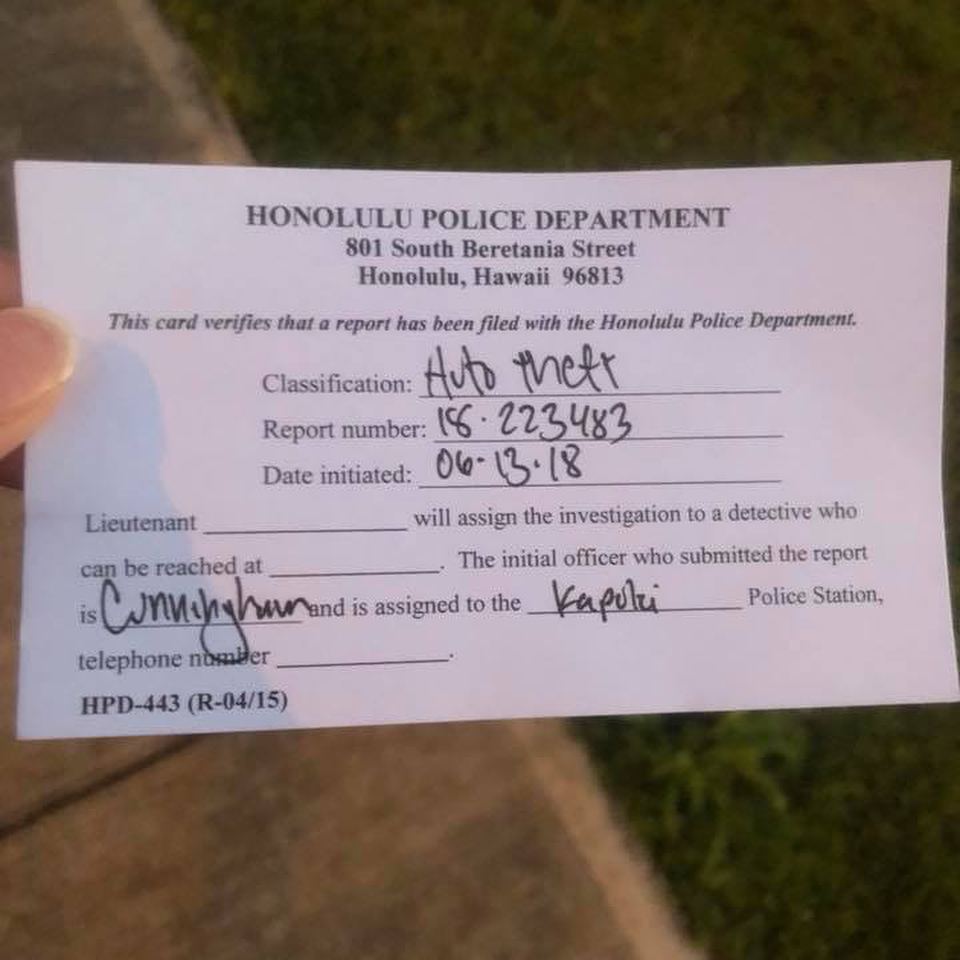 HONOLULU POLICE DEPARTMENT
801 South Beretania Street
Honolulu, Hawaii 96813
This card verifies that a report has been filed with the Honolulu Police Department.
Classification: Auto theft
Report number: 18-223483
Date initiated: 06-13-18
Lieutenant ____________ will assign the investigation to a detective who
can be reached at ____________. The initial officer who submitted the report
is Cunningham and is assigned to the Kapolei Police Station,
telephone number ____________.
HPD-443 (R-04/15)